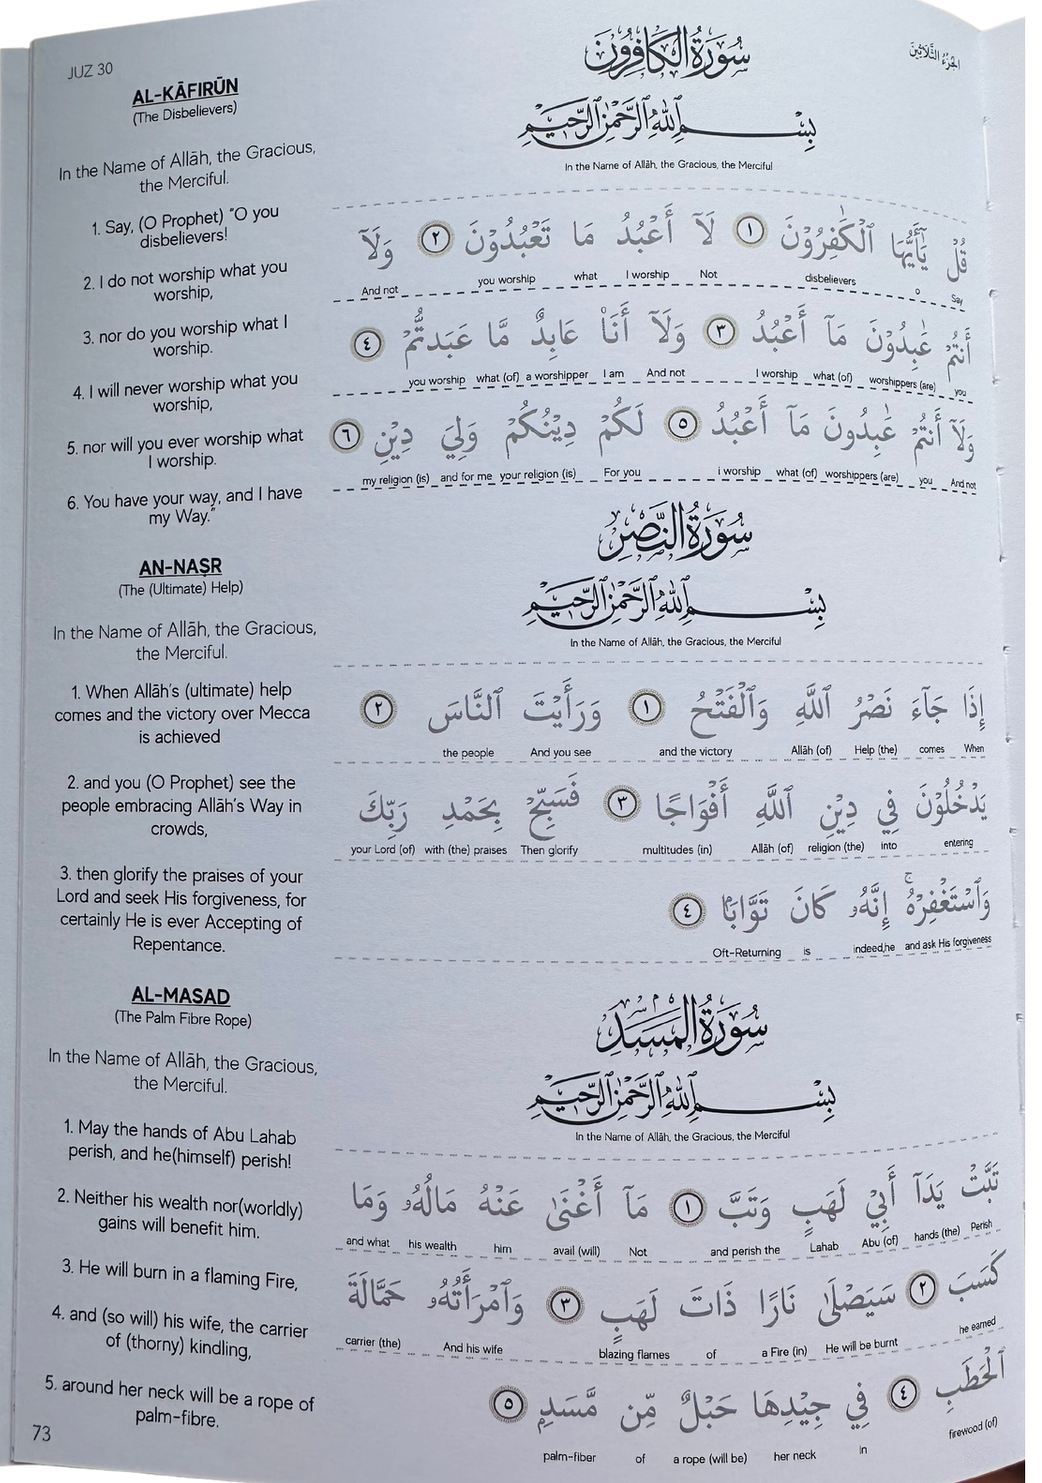 JUZ 30
الجزء الثلاثين
AL-KĀFIRŪN
(The Disbelievers)
In the Name of Allāh, the Gracious,
the Merciful.
1. Say, (O Prophet) "O you
disbelievers!
2. I do not worship what you
worship,
3. nor do you worship what I
worship.
4. I will never worship what you
worship,
5. nor will you ever worship what
I worship.
6. You have your way, and I have
my Way."
AN-NAṢR
(The (Ultimate) Help)
In the Name of Allāh, the Gracious,
the Merciful.
1. When Allāh's (ultimate) help
comes and the victory over Mecca
is achieved
2. and you (O Prophet) see the
people embracing Allāh's Way in
crowds,
3. then glorify the praises of your
Lord and seek His forgiveness, for
certainly He is ever Accepting of
Repentance.
AL-MASAD
(The Palm Fibre Rope)
In the Name of Allāh, the Gracious,
the Merciful.
1. May the hands of Abu Lahab
perish, and he(himself) perish!
2. Neither his wealth nor(worldly)
gains will benefit him.
3. He will burn in a flaming Fire,
4. and (so will) his wife, the carrier
of (thorny) kindling,
5. around her neck will be a rope of
palm-fibre.
73
سُورَةُ الكَافِرُونَ
بِسْمِ ٱللَّهِ ٱلرَّحْمَٰنِ ٱلرَّحِيمِ
In the Name of Allāh, the Gracious, the Merciful
قُلْ يَٰٓأَيُّهَا ٱلْكَٰفِرُوْنَ ١ لَآ أَعْبُدُ مَا تَعْبُدُوْنَ ٢ وَلَآ
And not you worship what I worship Not disbelievers o Say
أَنتُمْ عَٰبِدُوْنَ مَآ أَعْبُدُ ٣ وَلَآ أَنَا۠ عَابِدٌ مَّا عَبَدتُّمْ ٤
you worship what (of) a worshipper I am And not I worship what (of) worshippers (are) you
وَلَآ أَنتُمْ عَٰبِدُونَ مَآ أَعْبُدُ ٥ لَكُمْ دِيْنُكُمْ وَلِيَ دِيْنِ ٦
my religion (is) and for me your religion (is) For you i worship what (of) worshippers (are) you And not
سُورَةُ النَّصْرِ
بِسْمِ ٱللَّهِ ٱلرَّحْمَٰنِ ٱلرَّحِيمِ
In the Name of Allāh, the Gracious, the Merciful
إِذَا جَآءَ نَصْرُ ٱللَّهِ وَٱلْفَتْحُ ١ وَرَأَيْتَ ٱلنَّاسَ ٢
the people And you see and the victory Allāh (of) Help (the) comes When
يَدْخُلُوْنَ فِي دِيْنِ ٱللَّهِ أَفْوَاجًا ٣ فَسَبِّحْ بِحَمْدِ رَبِّكَ
your Lord (of) with (the) praises Then glorify multitudes (in) Allāh (of) religion (the) into entering
وَٱسْتَغْفِرْهُ ۚ إِنَّهُۥ كَانَ تَوَّابًۢا ٤
Oft-Returning is indeed,he and ask His forgiveness
سُورَةُ المَسَدِ
بِسْمِ ٱللَّهِ ٱلرَّحْمَٰنِ ٱلرَّحِيمِ
In the Name of Allāh, the Gracious, the Merciful
تَبَّتْ يَدَآ أَبِيْ لَهَبٍ وَتَبَّ ١ مَآ أَغْنَىٰ عَنْهُ مَالُهُۥ وَمَا
and what his wealth him avail (will) Not and perish the Lahab Abu (of) hands (the) Perish
كَسَبَ ٢ سَيَصْلَىٰ نَارًا ذَاتَ لَهَبٍ ٣ وَٱمْرَأَتُهُۥ حَمَّالَةَ
carrier (the) And his wife blazing flames of a Fire (in) He will be burnt he earned
ٱلْحَطَبِ ٤ فِي جِيْدِهَا حَبْلٌ مِّن مَّسَدٍ ٥
palm-fiber of a rope (will be) her neck in firewood (of)